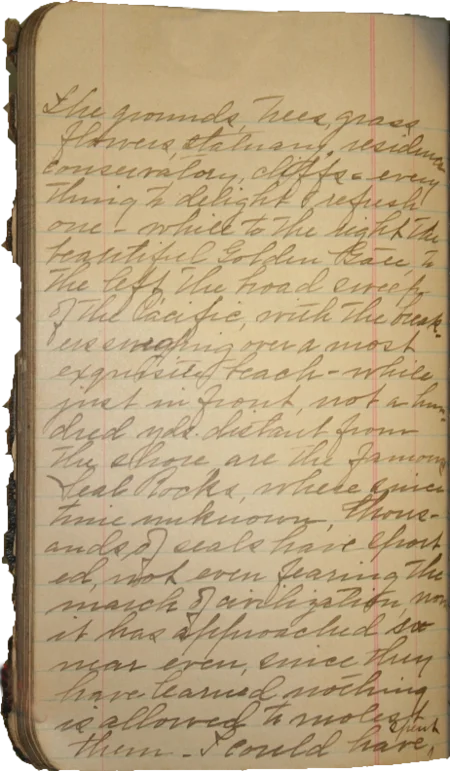 The grounds, trees, grass
flowers, statuary, residence
conservatory, cliffs - every
thing to delight & refresh
one - while to the right the
beautiful Golden Gate, to
the left the broad sweep
of the Pacific, with the break-
ers surging over a most
exquisite beach - while,
just in front, not a hun-
dred yds. distant from
the shore are the famous
Seal Rocks, where since
time unknown, thous-
ands of seals have sport
ed, not even fearing the
march of civilization, now
it has approached so
near even, since they
have learned nothing
is allowed to molest
them - I could have, spent